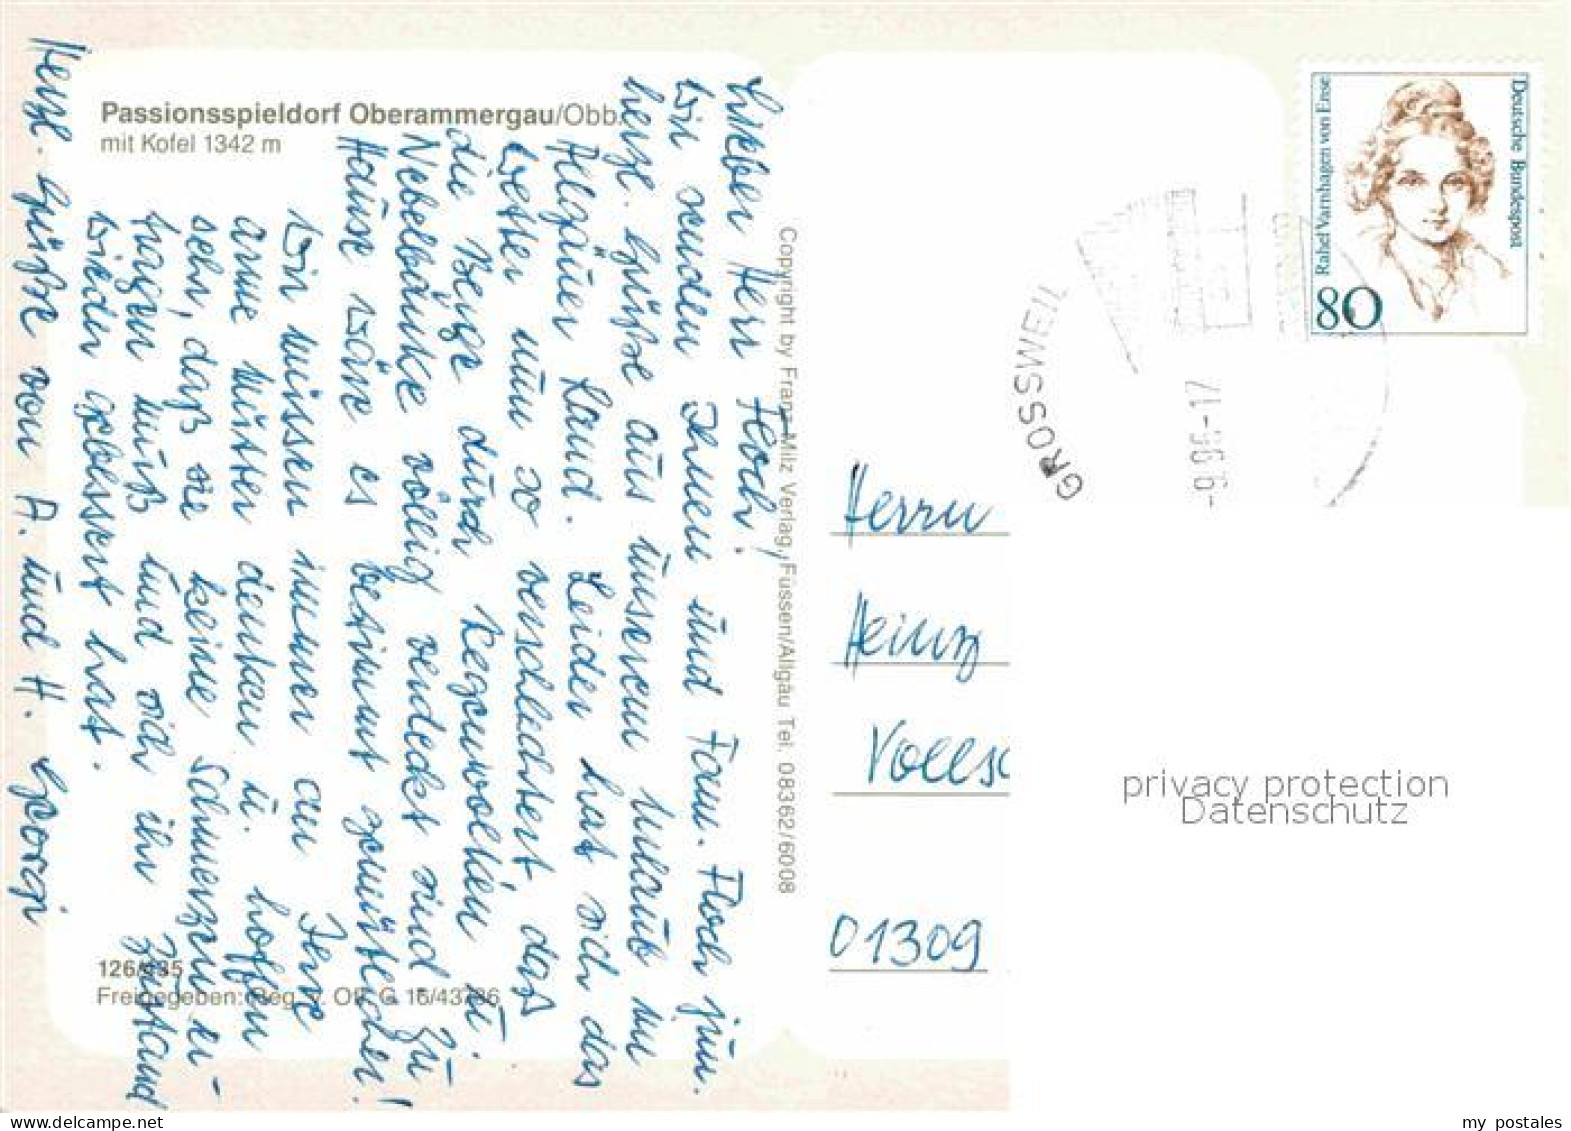 Passionsspieldorf Oberammergau/Obb.
mit Kofel 1342 m
Lieber Herr Floch!
Wir senden Ihnen und Fam. Floch jun.
herzl. Grüße aus unserem Urlaub im
Allgäuer Land. Leider hat sich das
Wetter nun so verschlechtert, daß
die Berge durch Regenwolken u.
Nebelbänke völlig verdeckt sind. Zu
Hause wäre es bestimmt gemütlicher!
Wir müssen immer an Ihre
arme Mutter denken u. hoffen
sehr, daß sie keine Schmerzen er-
tragen muß und sich ihr Zustand
wieder gebessert hat.
Herzl. Grüße von A. und H. Georgi
126/
Freigegeben: Reg. v. Obb. G 16/43
Copyright by Franz Milz Verlag, Füssen/Allgäu Tel. 08362/6008
Deutsche Bundespost
Rahel Varnhagen von Ense
80
GROSSWEIL
-17
Herrn
Heinz
Vollsc
01309
privacy protection
Datenschutz
my_postales